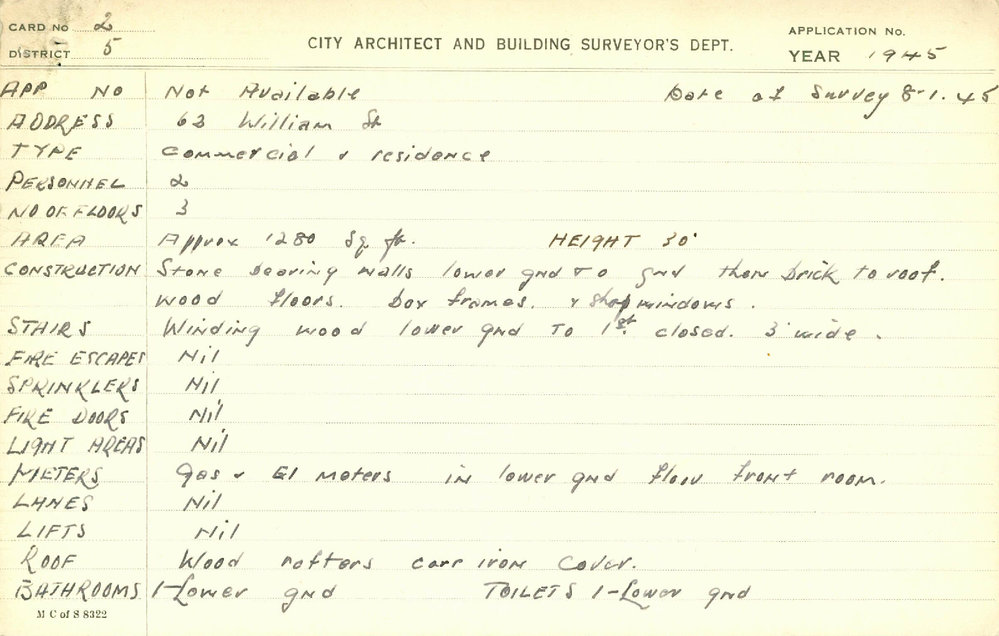 CARD No 2
DISTRICT 5
CITY ARCHITECT AND BUILDING SURVEYOR'S DEPT.
APPLICATION No.
YEAR 1945
APP No Not Available Date of Survey 8-1.45
ADDRESS 62 William St
TYPE Commercial & residence
PERSONNEL 2
NO OF FLOORS 3
AREA Approx 1280 Sq ft. HEIGHT 30'
CONSTRUCTION Stone bearing walls lower gnd to gnd then brick to roof.
wood floors. box frames. & shop windows.
STAIRS Winding wood lower gnd to 1st closed. 3' wide.
FIRE ESCAPES Nil
SPRINKLERS Nil
FIRE DOORS Nil
LIGHT AREAS Nil
METERS Gas & El meters in lower gnd floor front room.
LANES Nil
LIFTS Nil
ROOF Wood rafters corr iron cover.
BATHROOMS 1-Lower gnd TOILETS 1-Lower gnd
M C of S 8322